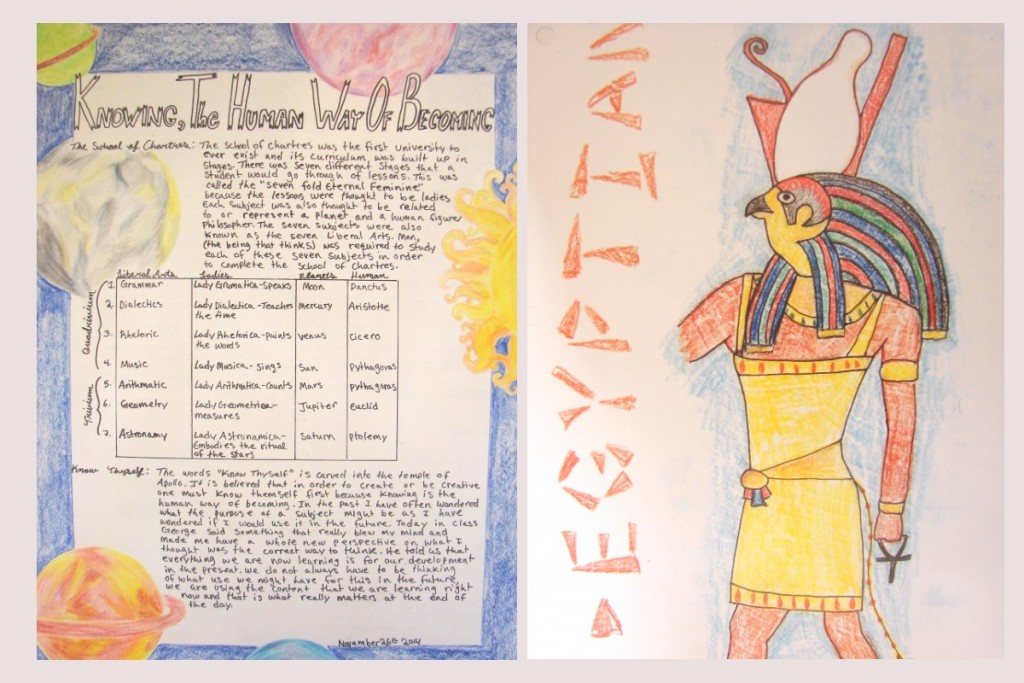 KNOWING, THE HUMAN WAY OF BECOMING
The School of Chartres: The school of chartres was the first University to
ever exist and its curriculum was built up in
stages. There was seven different stages that a
student would go through of lessons. This was
called the "seven fold Eternal Feminine"
because the lessons were thought to be ladies
Each Subject was also thought to be related
to or represent a planet and a human figure/
Philosopher. The seven subjects were also
known as the seven Liberal Arts. Man,
(the being that thinks) was required to study
each of these seven subjects in order
to complete the School of Chartres.
Liberal Arts Ladies Planets Human
Quadrivium
1. Grammar Lady Gramatica-speaks Moon Danctus
2. Dialectics Lady Dialectica-Teaches Mercury Aristotle
the time
3. Rhetoric Lady Rhetorica-paints venus Cicero
the words
4. Music Lady Musica- sings Sun Pythagoras
Trivium
5. Arithmatic Lady Arithmatica-Counts Mars pythagoras
6. Geometry Lady Geometrica- Jupiter Euclid
measures
7. Astronamy Lady Astronamica- Saturn ptolemy
Embodies the ritual
of the stars
Know Thyself: The words "Know Thyself" is carved into the temple of
Apollo. It is believed that in order to create or be creative
one must know themself first because knowing is the
human way of becoming. In the past I have often wondered
what the purpose of a subject might be as I have
wondered if I would use it in the future. Today in class
George said something that really blew my mind and
made me have a whole new perspective on what I
thought was the correct way to think. He told us that
everything we are now learning is for our development
in the present. we do not always have to be thinking
of what use we might have for this in the future,
we are using the content that we are learning right
now and that is what really matters at the end of
the day.
November 26th 2014
EGYPTIAN